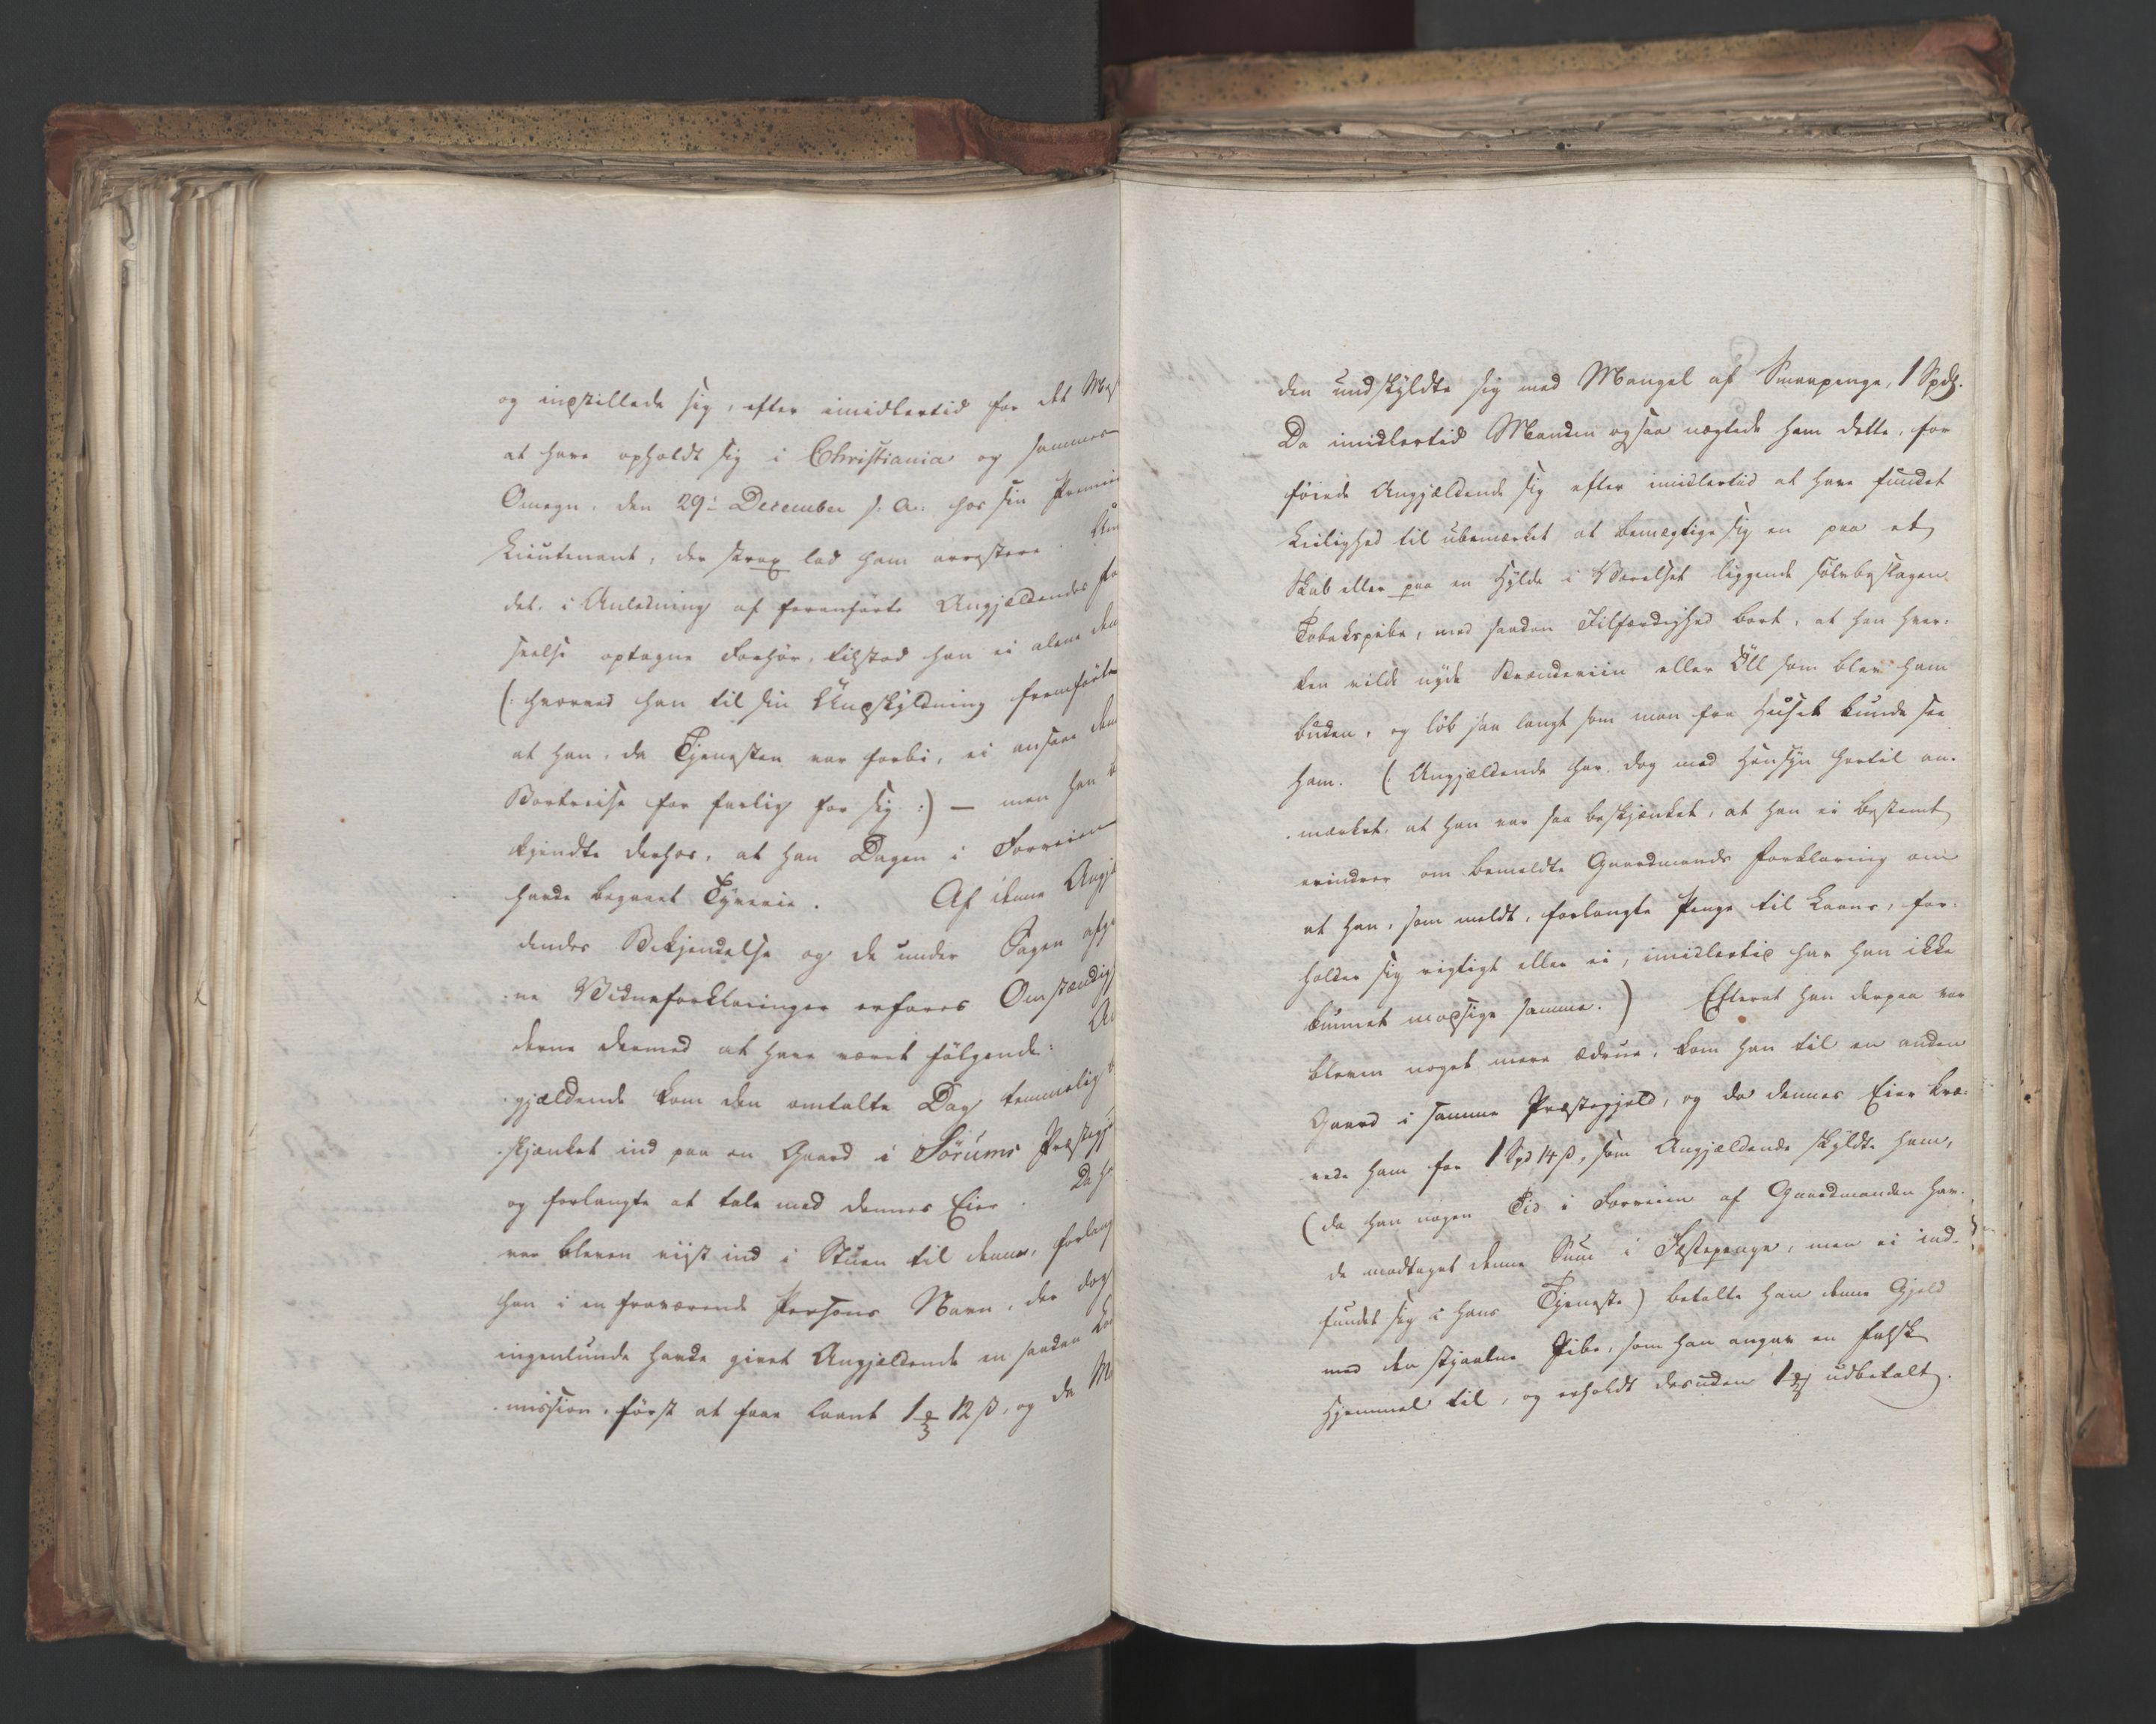 og indstillede sig, efter imidlertid for det Mes
at have opholdt sig i Christiania og sammes
Omegn, den 29de December s. A. hos sin Premier
Lieutenant, der strax lod ham arrestere. Un
det, i Anledning af foranførte Angjældendes Fo
seelse optagne Forhør, tilstod han ei alene den
(: hvorved han til sin Undskyldning fremførte
at han, da Tjenesten var forbi, ei ansaae den
Bortreise for farlig for sig :) — men han b
kjendte derhos, at han Dagen i Forveien
havde begaaet Tyverie. Af denne Angjæ
dendes Bekjendelse og de under Sagen afg
ne Vidneforklaringer erfares Omstændig
derne dermed at have været følgende: A
gjældende kom den omtalte Dag temmelig b
skjænket ind paa en Gaard i Sørums Præstegj
og forlangte at tale med dennes Eier. Da h
var bleven viist ind i Stuen til denne, forlang
han i en fraværende Persons Navn, der dog
ingenlunde havde givet Angjældende en saadan Ko
mission, først at faae laant 1 12 ß, og da M
den undskyldte sig med Mangel af Smaapenge, 1 Spd.
Da imidlertid Manden ogsaa nægtede ham dette, for
føiede Angjældende sig efter imidlertid at have fundet
Leilighed til ubemærket at bemægtige sig en paa et
Skab eller paa en Hylde i Værelset liggende sølvbeslagen
Tobakspibe, med saadan Ilfærdighed bort, at han hver-
ken vilde nyde Brændeviin eller Öll som blev ham
buden, og løb saa langt som man fra Huset kunde see
ham. (: Angjældende har dog med Hensyn hertil an-
mærket, at han var saa beskjænket, at han ei bestemt
erindrer om bemeldte Gaardmands Forklaring om
at han, som meldt, forlangte Penge til Laans, for-
holder sig rigtigt eller ei, imidlertid har han ikke
kunnet modsige samme.) Efterat han derpaa var
bleven noget mere ædrue, kom han til en anden
Gaard i samme Præstegjeld, og da dennes Eier kræ-
vede ham for 1 Spd 14 ß, som Angjældende skyldte ham,
(da han nogen Tid i Forveien af Gaardmanden hav-
de modtaget denne Sum i Fæstepenge, men ei ind-
fundet sig i hans Tjeneste) betalte han denne Gjeld
med den stjaalne Pibe, som han angav en falsk
Hjemmel til, og erholdt desuden 1 udbetalt.